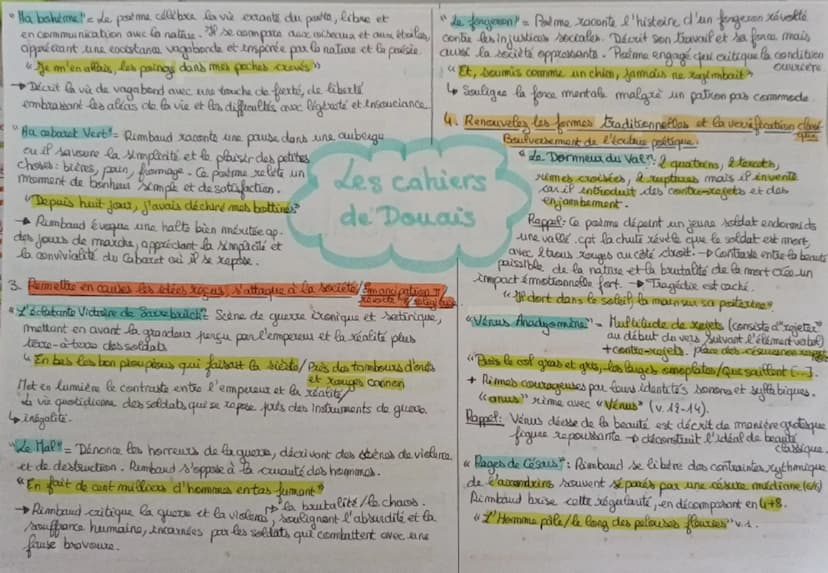 "Ma bohème" = Le poème célèbre la vie errante du poète, libre et
en communication avec la nature. Il se compare aux oiseaux et aux étoiles,
appréciant une existance vagabonde et inspirée par la nature et la poésie.
"Je m'en allais, les poings dans mes poches crevées"
→ Décrit la vie de vagabond avec une touche de fierté, de liberté
embrassant les aléas de la vie et les difficultés avec légèreté et insouciance.
"Au cabaret Vert" = Rimbaud raconte une pause dans une auberge
où il savoure la simplicité et le plaisir des petites
choses: bières, pain, fromage. Ce poème reflète un
moment de bonheur simple et de satisfaction.
"Depuis huit jours, j'avais déchiré mes bottines"
→ Rimbaud évoque une halte bien méritée ap.
des jours de marche, appréciant la simplicité et
la convivialité du Cabaret où il se repose.
Les cahiers
de Douais
3. Remettre en causes les idées reçues, s'attaque à la société/ émancipation ≠
révolte ≠ religion
"L'éclatante Victoire de Sarrebrück" = Scène de guerre ironique et satirique,
mettant en avant la grandeur perçu par l'empereur et la réalité plus
terre-à-terre des soldats
"En bas les bon pioupious qui faisait la sieste/ Près des tambours d'ors
et rouges canon"
Met en lumière le contraste entre l'empereur et la réalité/
la vie quotidienne des soldats qui se repose près des instruments de guerre.
↳ inégalité.
"Le Mal" = Dénonce les horreurs de la guerre, décrivant des scènes de violence
et de destruction. Rimbaud s'oppose à la cruauté des hommes.
"En fait de cent milliers d'hommes en tas fumant"
↳ la brutalité/le chaos.
→ Rimbaud critique la guerre et la violence, soulignant l'absurdité et la
souffrance humaine, incarnées par les soldats qui combattent avec une
fausse bravoure.
"Le forgeron" = Poème raconte l'histoire d'un forgeron révolté
contre les injustices sociales. Décrit son travail et sa force mais
aussi la société oppressante. Poème engagé qui critique la condition
ouvrière.
"Et, soumis comme un chien, jamais ne regimbait"
↳ Souligne la force mentale malgré un patron pas commode.
4. Renouveler les formes traditionnelles et la versification classique
Bouleversement de l'écriture poétique.
"Le Dormeur du Val": 2 quatrains, 2 tercets,
rimes croisées, 2 ruptures mais il invente
car il introduit des contre-rejets et des
enjambement.
Rappel: Ce poème dépeint un jeune soldat endormi ds
une vallé. cpt la chute révèle que le soldat est mort
avec 2 trous rouges au côté droit. → Contraste entre la beauté
paissible de la nature et la brutalité de la mort crée un
impact émotionnelle fort. → Tragédie est caché.
"Il dort dans le soleil la main sur sa poitrine"
"Vénus Anadyomène" = Multitude de rejets (consiste à "rejeter"
au début de vers suivant l'élément verbal)
+ contre-rejets.
"Puis le col gras et gris, les larges omoplates/Que saillent [...]
+ Rimes courageuses par leurs identités sonores et syllabiques.
"anus" rime avec "Vénus" (v. 13-14).
Rappel: Vénus déesse de la beauté est décrit de manière grotesque
figure repoussante → déconstruit l'idéal de beauté
classique.
"Rages de Césars": Rimbaud se libère des contraintes rythmique
de l'alexandrins souvent séparés par une césure médiane (6/6)
Rimbaud brise cette régularité, en décomposant en 4+8.
"L'Homme pâle/ le long des pelouses fleuries" v.1.